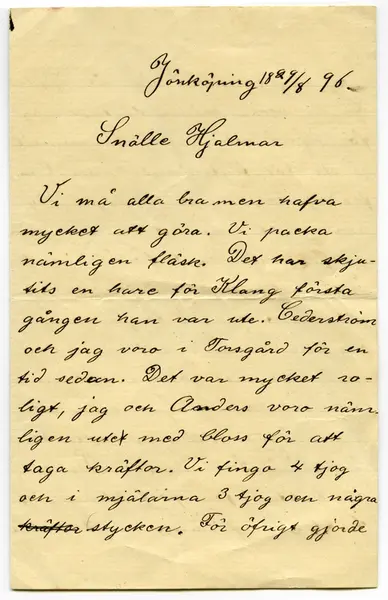 Jönköping 18 29/8 96.
Snälle Hjalmar
Vi må alla bra men hafva
mycket att göra. Vi packa
nämligen fläsk. Det har skju-
tits en hare för Klang första
gången han var ute. Cederström
och jag voro i Torsgård för en
tid sedan. Det var mycket ro-
ligt, jag och Anders voro näm-
ligen utet med bloss för att
taga kräftor. Vi fingo 4 tjog
och i mjälarna 3 tjog och några
kräftor stycken. För öfrigt gjorde